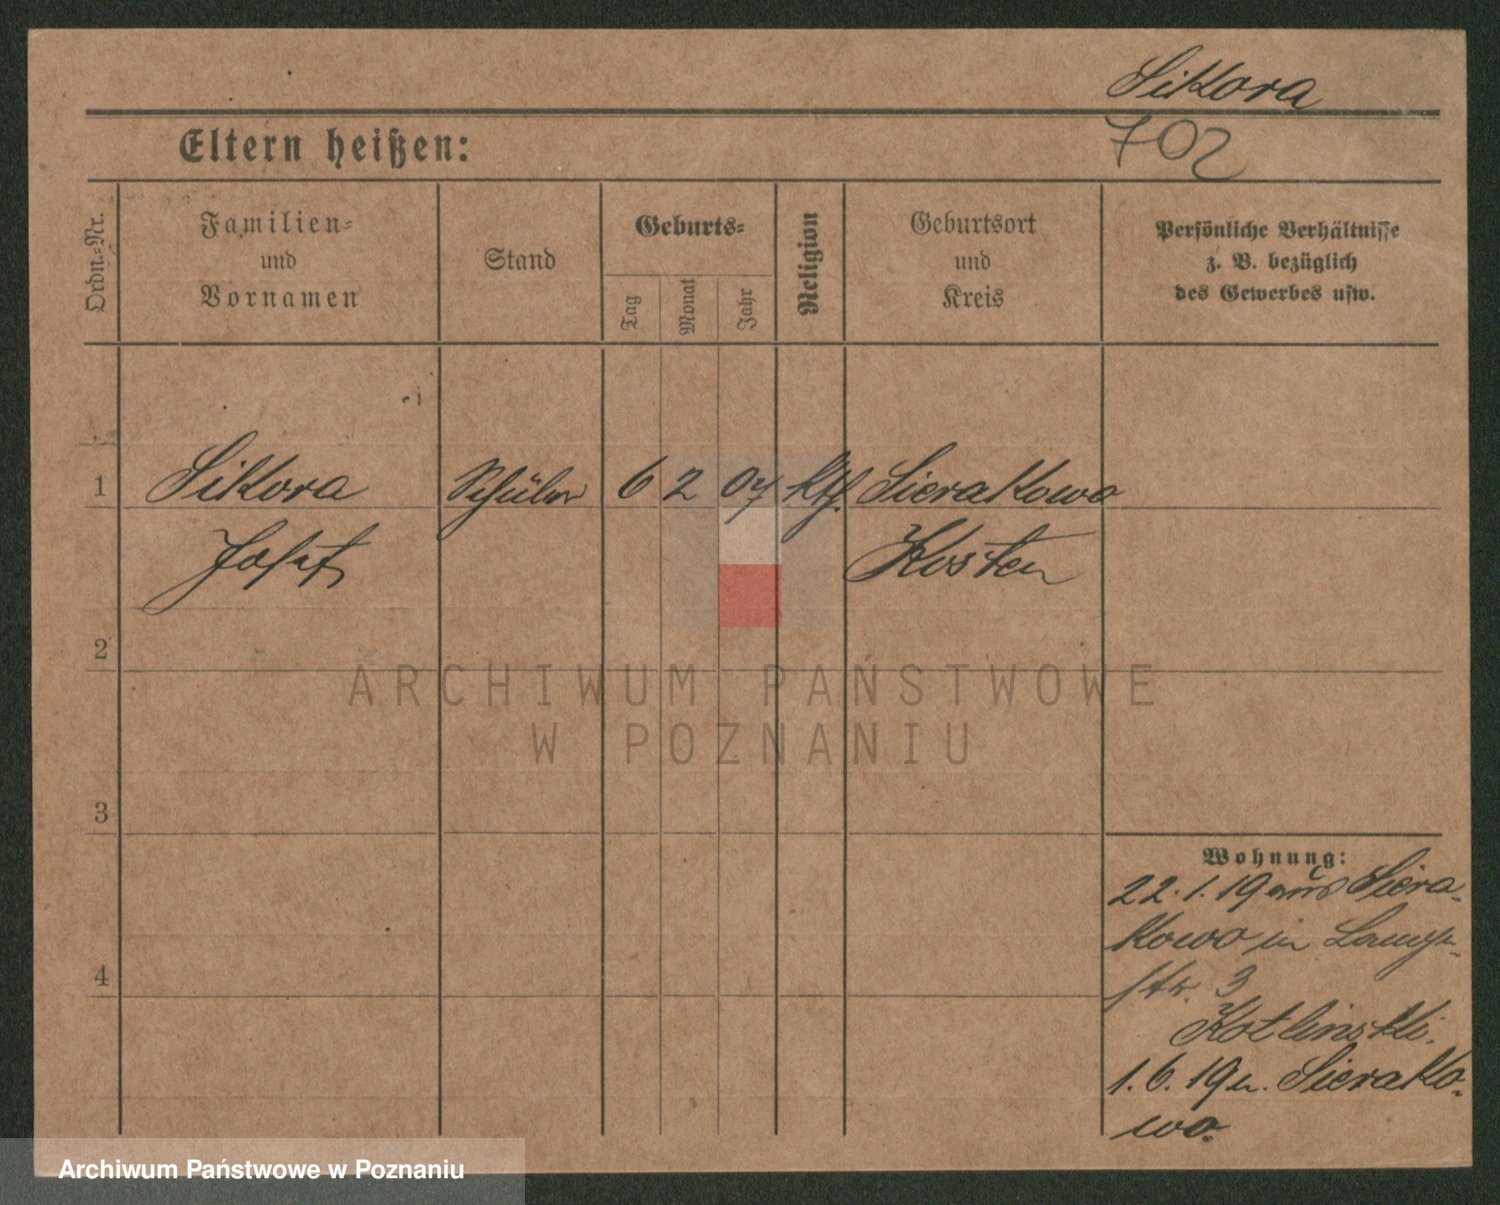 Sikora
702
Eltern heißen:
Ordn.-Nr.
Familien-
und
Vornamen
Stand
Geburts-
Tag
Monat
Jahr
Religion
Geburtsort
und
Kreis
Persönliche Verhältnisse
z. B. bezüglich
des Gewerbes usw.
1 Sikora Schüler 6 2 07 kth. Sierakowo
Josef Kosten
2
ARCHIWUM PAŃSTWOWE
W POZNANIU
3
Wohnung:
22.1.19 aus Siera-
kowo in
4
str. 3
Kotlinski.
1.6.19 n. Sierako-
wo.
Archiwum Państwowe w Poznaniu